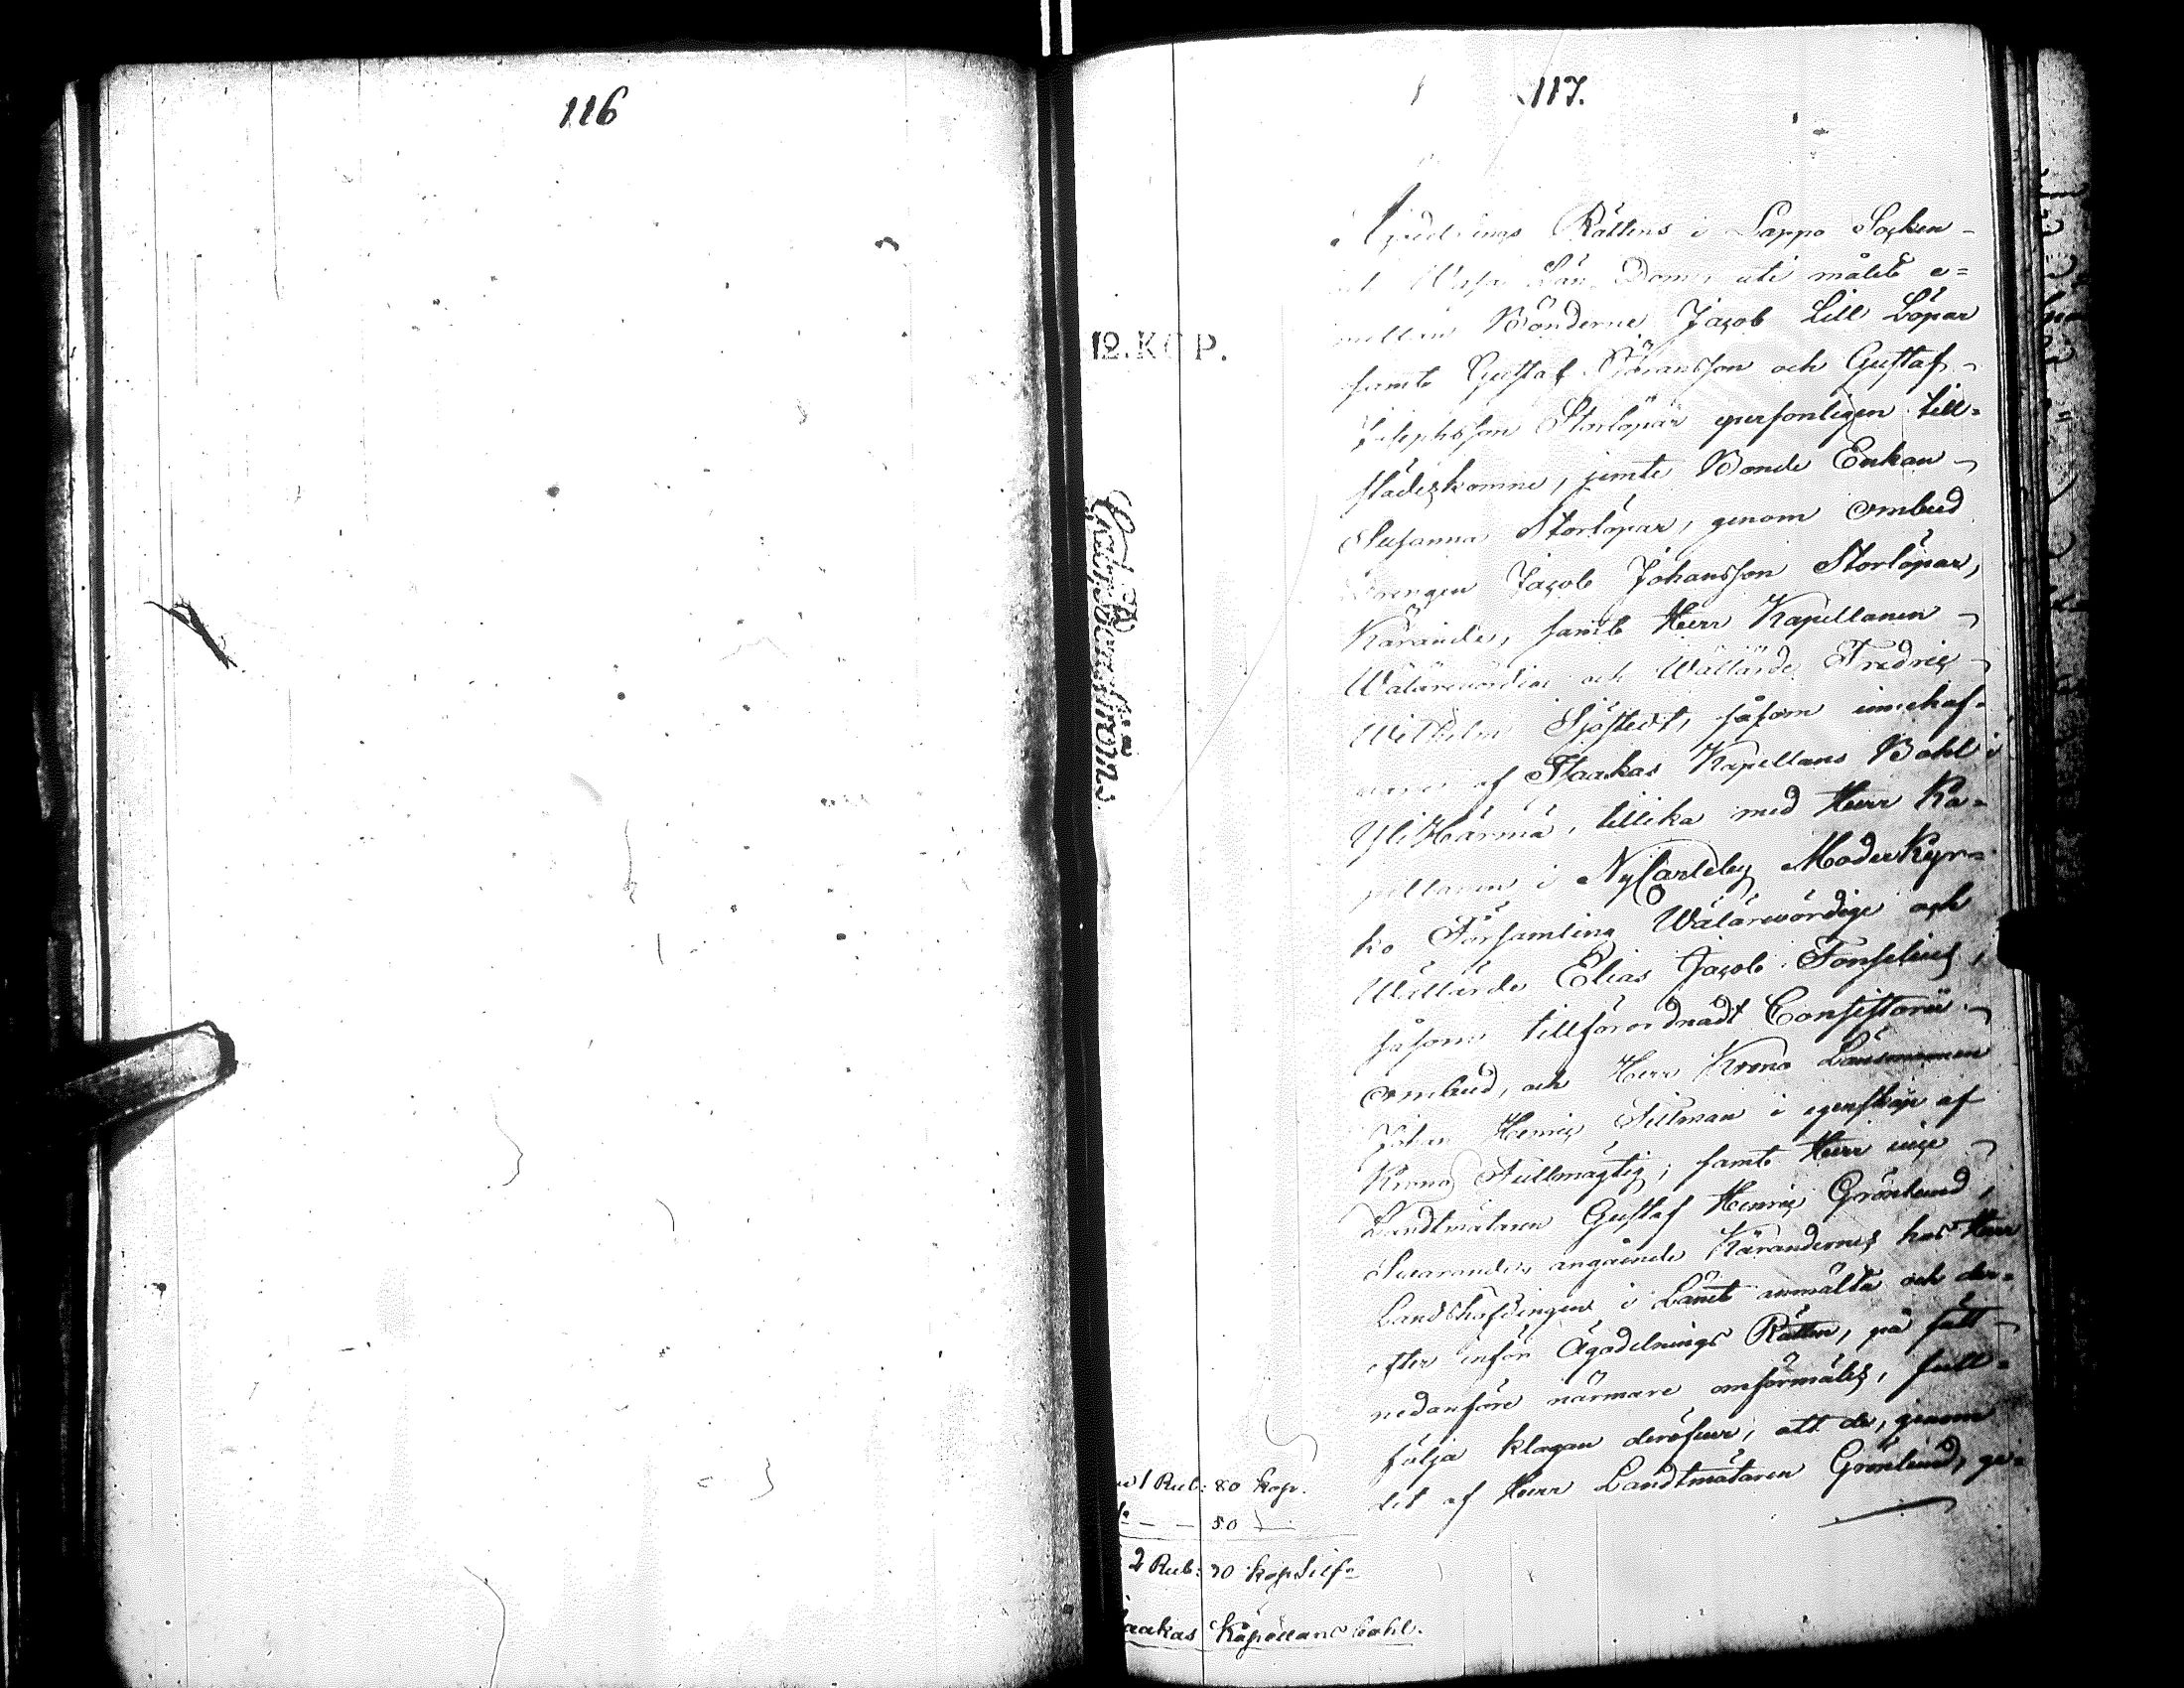 116
117.
Rättens i Lappo Socken
Wasa Län Dom, uti målet e=
mellan Bönderne Jacob Lill Löpar
samt Gustaf Göransson och Gustaf
Josephsson Storlöpar personligen till=
städeskomne, jemte Bonde Enkan
Susanna Storlöpar, genom ombud
Drengen Jacob Johansson Storlöpar,
Kärande, samt Herr Kapellanen
Wälärevördige och Wällärde Fredric
Wilhelm Sjöstedt, såsom innehaf=
vare af Flaakas Kapellans Bohl i
YliHärmä, tillika med Herr Ka=
pellanen i NyCarleby Moderkyr=
ko Församling Wälärevördige och
Wällärde Elias Jacob Fonselius,
såsom tillförordnadt Consistorii
ombud, och Herr Krono Länsmannen
Johan Henric Tillman i egenskap af
Krono Fullmagtig; samt Herr vice
Landtmätaren Gustaf Henric Grönlund,
Svarande, angående Kärandernes hos Herr
Landshöfdingen i Länet anmälta och der=
efter inför Ägodelnings Rätten, på sätt
nedanföre närmare omförmäles, full=
följda klagan deröfver, att de, genom
det af Herr Landtmätaren Grönlund, ge=
12. KOP.
1 Rub: 80 kop.
50
2 Rub: 30 kop Silfr
aakas Kapellans bohl.